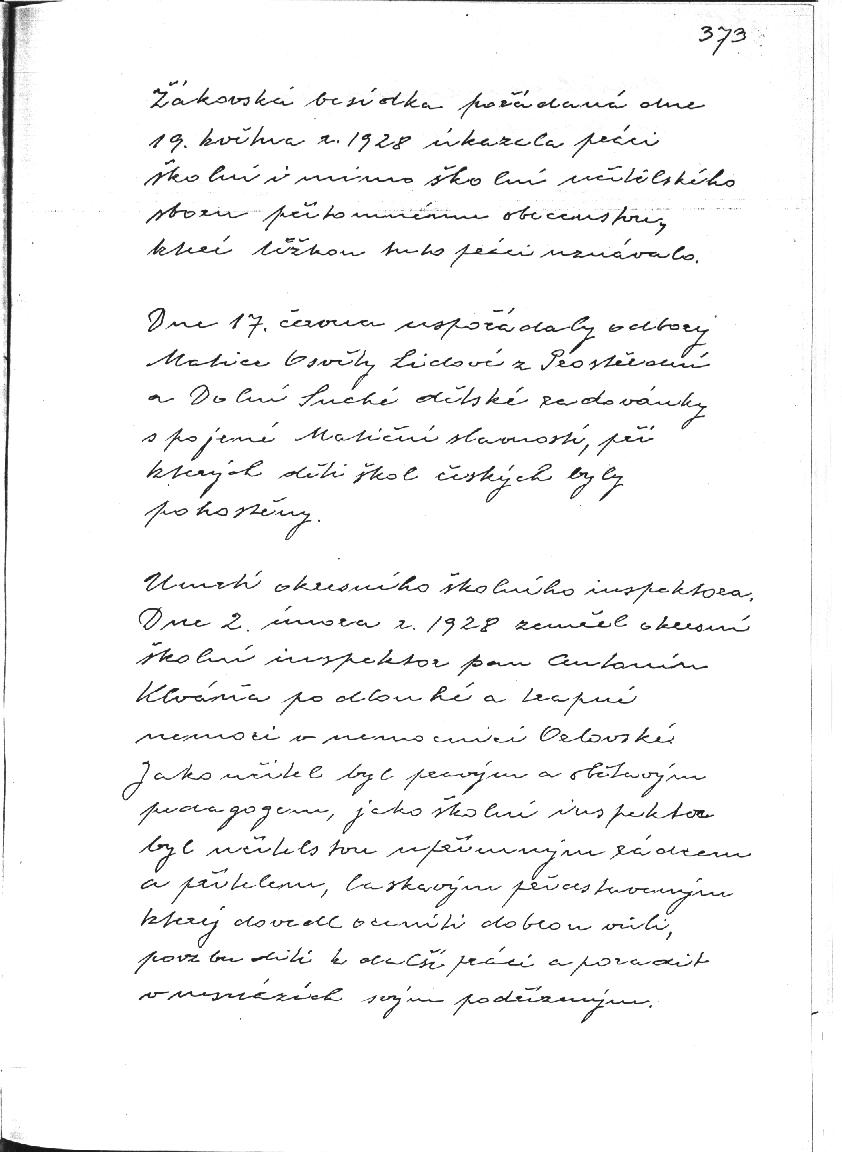 373
Žákovská besídka pořádaná dne
19. května r. 1928 úkazala práci
školní i mimo školní učitelského
sboru přítomnému obecenstvu,
kteří těžkou tuto práci uznávalo.
Dne 17. června uspořádaly odbory
Matice Osvěty Lidové z Prostřední
a Dolní Suché dětské radovánky
spojené Matiční slavností, při
kterých děti škol českých byly
pohostěny.
Úmrtí okresního školního inspektora.
Dne 2. února r. 1928 zemřel okresní
školní inspektor pan Antonín
Klváňa po dlouhé a trapné
nemoci v nemocnici Orlovské.
Jako učitel byl pravým a obětavým
pedagogem, jako školní inspektor
byl učitelstvu upřímným rádcem
a přítelem, laskavým představeným
který dovedl oceniti dobrou vůli,
povzbuditi k další práci a poradit
v nesnázích svým podřízeným.